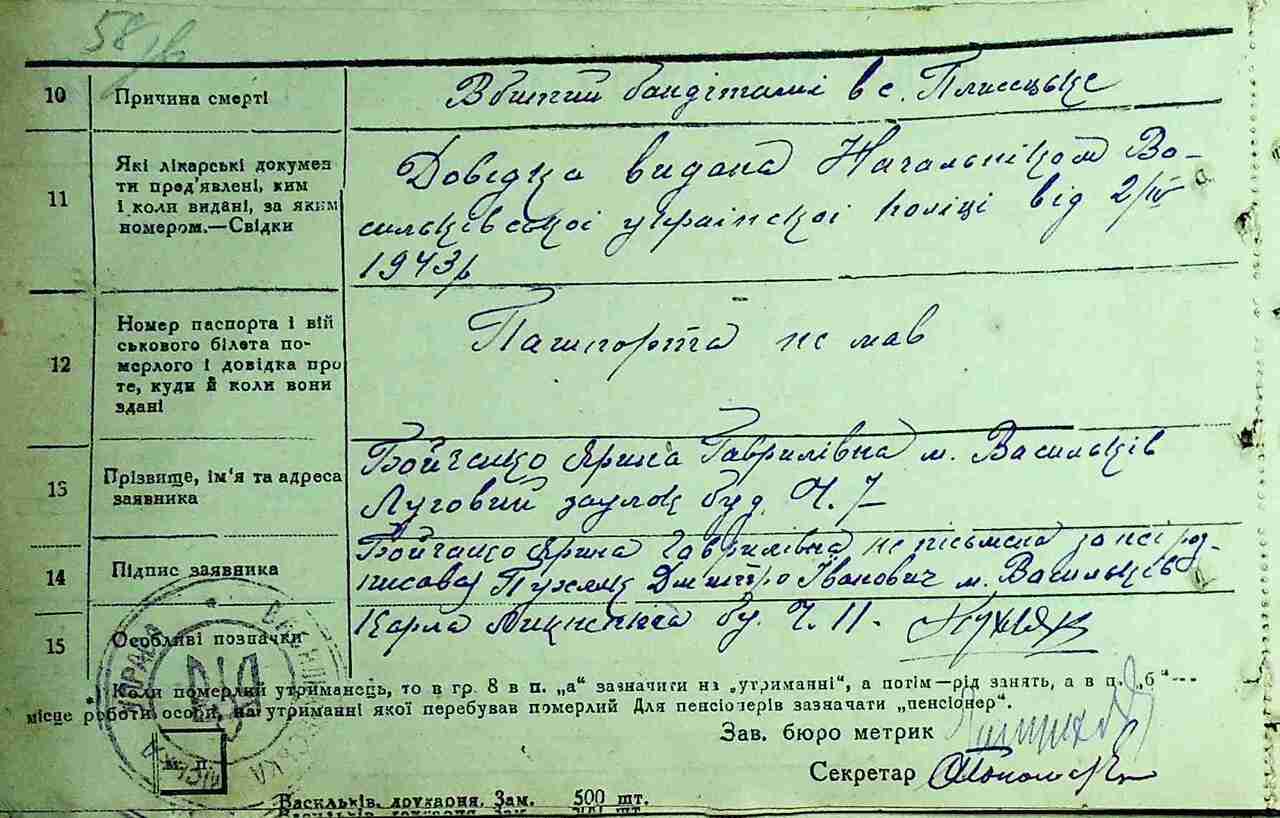 58
10 Причина смерті Вбитий бандітамі в с. Плисецьке
11 Які лікарські докумен
ти пред'явлені, ким
і коли видані, за яким
номером.—Свідки
Довідка видана Начальніком Ва-
сильківської української поліці від 2/IV
1943р
12 Номер паспорта і вій
ськового білета по-
мерлого і довідка про
те, куди й коли вони
здані
Пашпорта не мав
13 Прізвище, ім'я та адреса
заявника
Бойченко Ярина Гаврилівна м. Васильків
Луговий заулок буд. Ч. 7
14 Підпис заявника
Бойченко Ярина Гаврилівна не пісьмена за неі роз-
писавсь Дмитро Іванович м. Васильків
15 Особливі позначки
Карла Лікнехта бу. Ч. 11.
УПРАВА
МІСЬКА
Коли померлий утриманець, то в гр. 8 в п. „а“ зазначити на „утриманні“, а потім—рід занять, а в п. „б“—
місце роботи особи, на утриманні якої перебував померлий Для пенсіонерів зазначати „пенсіонер“.
Зав. бюро метрик
Секретар
м. п.
Васильків. друкарня. Зам. 500 шт.